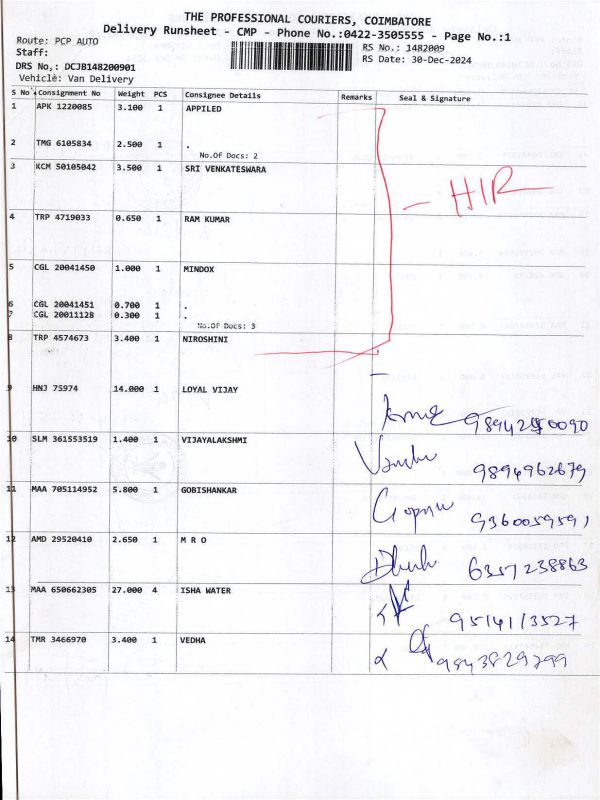 THE PROFESSIONAL COURIERS, COIMBATORE
Delivery Runsheet - CMP - Phone No.:0422-3505555 - Page No.:1
Route: PCP AUTO
RS No.: 1482009
Staff:
RS Date: 30-Dec-2024
DRS No,: DCJB148200901
Vehicle: Van Delivery
S No Consignment No Weight PCS Consignee Details Remarks Seal & Signature
1 APK 1220085 3.100 1 APPILED
2 TMG 6105834 2.500 1 .
No.Of Docs: 2
3 KCM 50105042 3.500 1 SRI VENKATESWARA
- HIR
4 TRP 4719033 0.650 1 RAM KUMAR
5 CGL 20041450 1.000 1 MINDOX
6 CGL 20041451 0.700 1 .
7 CGL 20011128 0.300 1 .
No.Of Docs: 3
8 TRP 4574673 3.400 1 NIROSHINI
9 HNJ 75974 14.000 1 LOYAL VIJAY
10 SLM 361553519 1.400 1 VIJAYALAKSHMI
9894962679
11 MAA 705114952 5.800 1 GOBISHANKAR
9360059591
12 AMD 29520410 2.650 1 M R O
6357238863
13 MAA 650662305 27.000 4 ISHA WATER
9514113527
14 TMR 3466970 3.400 1 VEDHA
9843829799